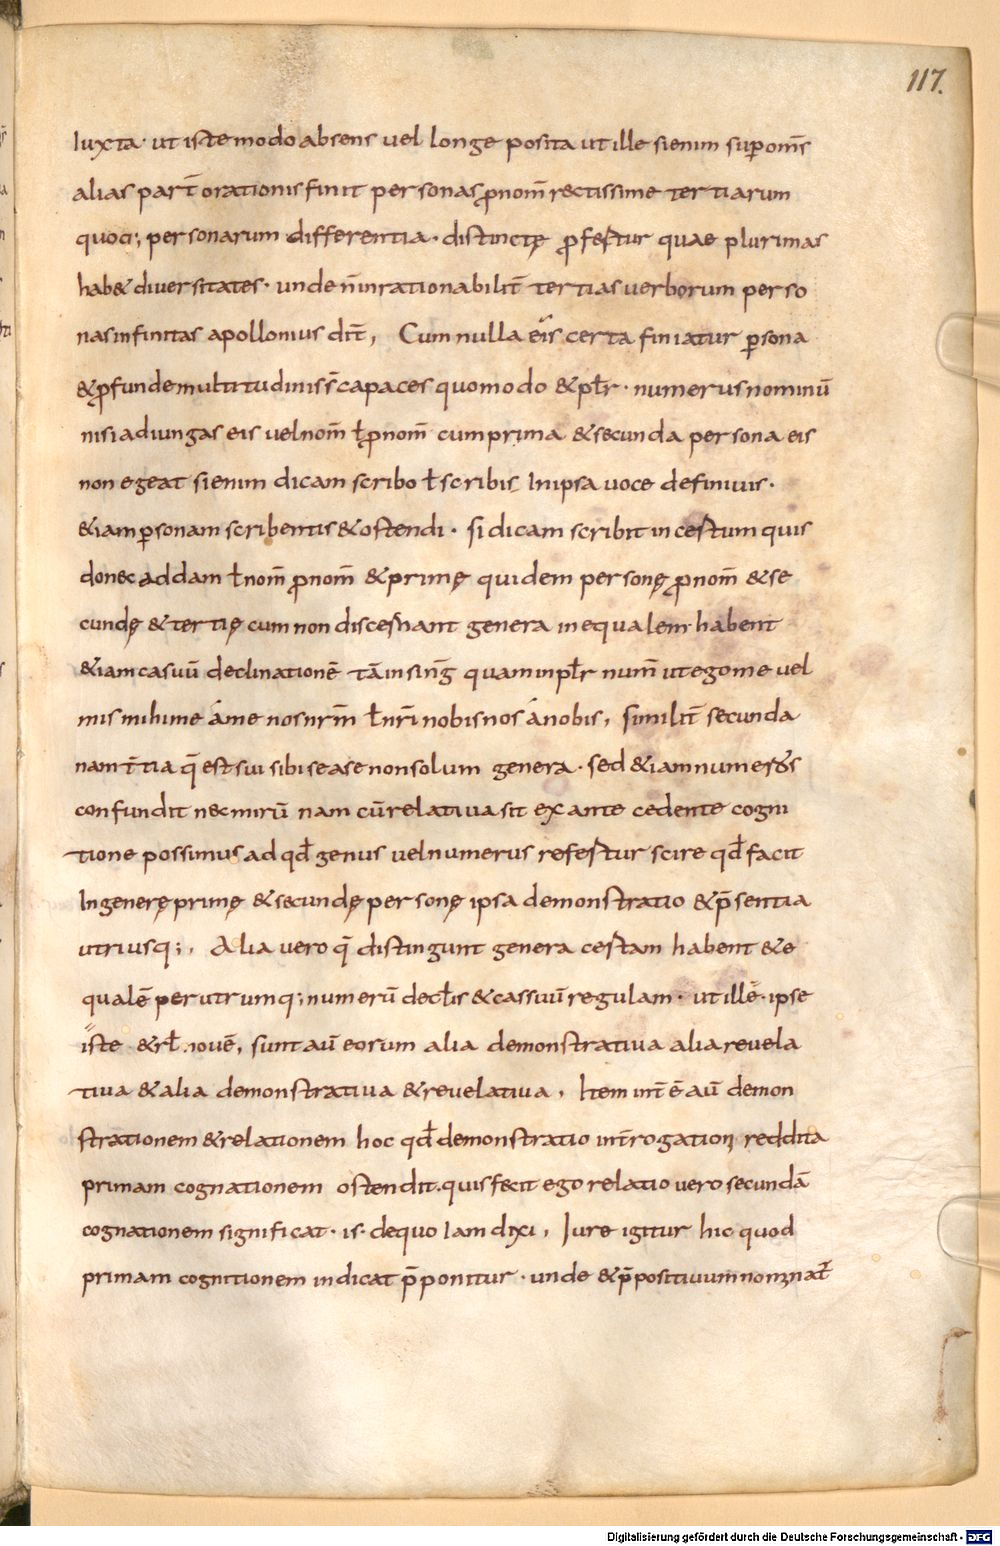 117.
Iuxta· ut iste modo absens vel longe posita ut ille si enim sup om̄s
alias part̄ orationis finit personas ꝓnom̄ rectissime tertiarum
quoq; personarum differentia· distinctę ꝓfertur quae plurimas
hab& diversitates· unde n̄ inrationabilit̄ tertias verborum perso
nas infinitas apollonius dic̄t, Cum nulla eīs certa finiatur ꝑsona
&ꝓfunde multitudinis s̄ capaces quomodo & pl̄r· numerus nominū
nisi adiungas eis vel nom̄ ł ꝓnom̄ cum prima & secunda persona eis
non egeat si enim dicam scribo ł scribis In ipsa voce definivis·
&iam ꝑsonam scribentis & ostendi· si dicam scribit incertum quis
donec addam ł nom̄ ꝓnom̄ & primę quidem personę ꝓnom̄ & se
cundę & tertię cum non discernant genera inequalem habent
&iam casuū declinationē tā in sinḡ quam in pl̄r num̄ ut ego me vel
mis mihi me áme nos nr̄m ł nr̄i nobis nos ánobis, similit̄ secunda
nam t̄tia q̄ est sui sibi se ase non solum genera· sed &iam numeros
confundit nec mirū nam cū relativa sit ex ante cedente cogni
tione possimus ad qđ genus vel numerus refertur scire qđ facit
In generę primę & secundę personę ipsa demonstratio & p̄sentia
utriusq;, Alia vero q̄ distingunt genera certam habent & e
qualē per utrumq; numerū decł̄is & cassuū regulam· ut ille· ipse
iste & rł novē, sunt aū eorum alia demonstrativa alia revela
tiva & alia demonstrativa & revelativa, Item int̄ ē aū demon
strationem & relationem hoc qđ demonstratio int̄rogationi reddita
primam cognationem ostendit. quis fecit ego relatio vero secundā
cognationem significat· is· de quo Iam dixi, Iure igitur hic quod
primam cognitionem indicat p̄ponitur· unde & p̄positivum nominat̄
Digitalisierung gefördert durch die Deutsche Forschungsgemeinschaft - DFG